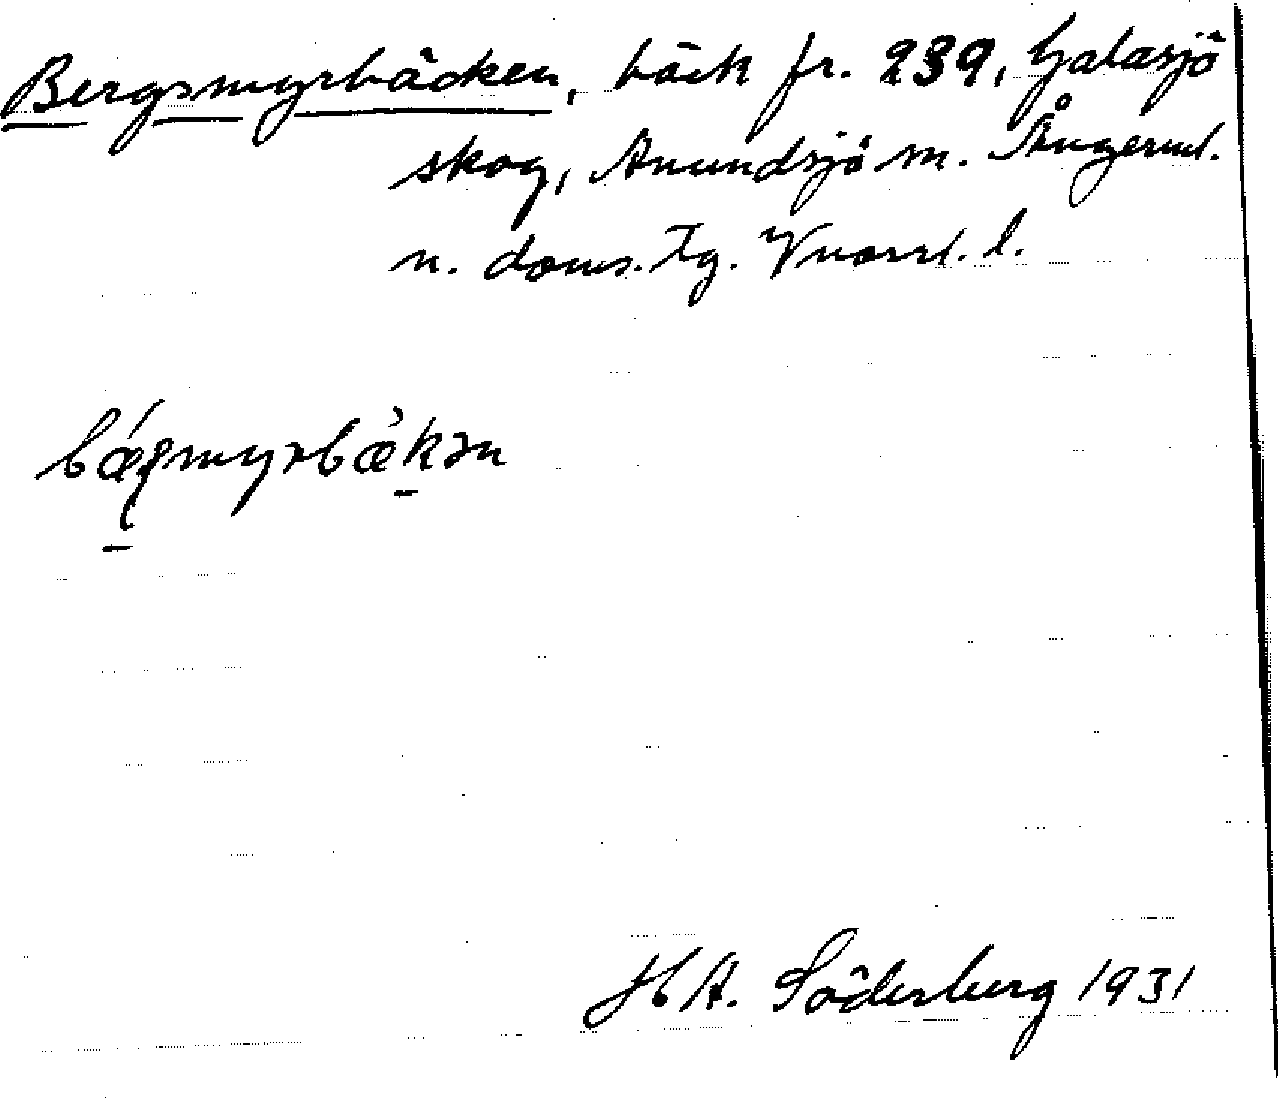 Bergsmyrbäcken, bäck fr. 239, Galasjö
skog, Anundsjö sn. Ångerml.
n. doms. Tg. Västrl. l.
bǽgmyrbækən
H A. Söderberg 1931